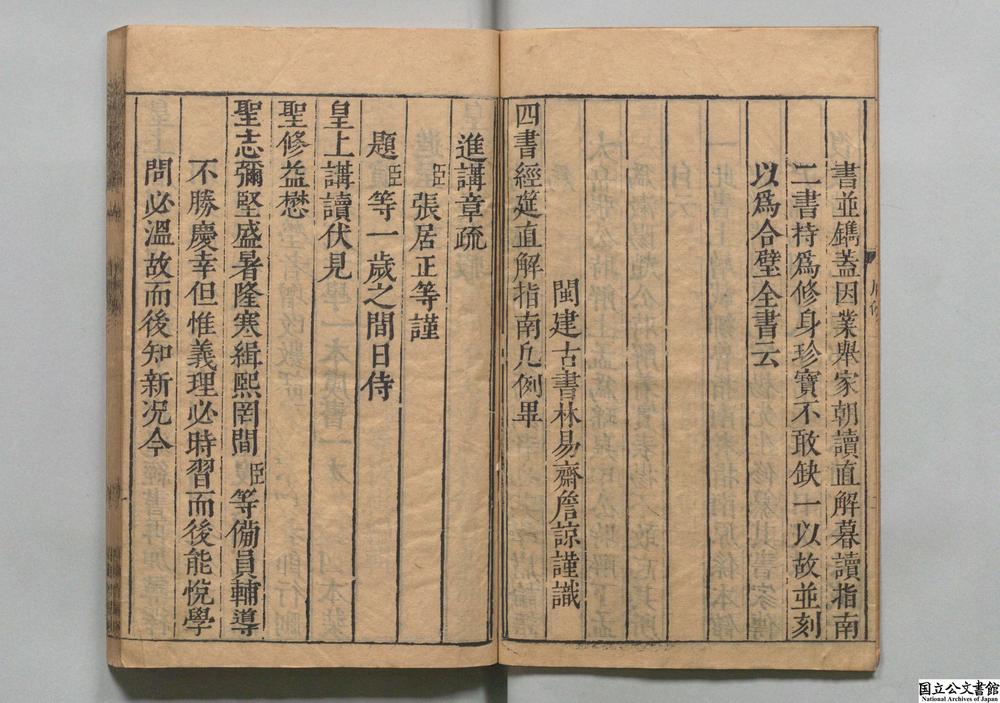 書並鐫蓋因業舉家朝讀直解暮讀指南
二書持為修身珍寶不敢缺一以故並刻
以為合璧全書云
閩建古書林易齋詹諒謹識
四書經筵直解指南凡例畢
進講章疏
臣張居正等謹
題臣等一歲之間日侍
皇上講讀伏見
聖修益懋
聖志彌堅盛暑隆寒緝熙罔間臣等備員輔導
不勝慶幸但惟義理必時習而後能悅學
問必溫故而後知新況今
国立公文書館
National Archives of Japan